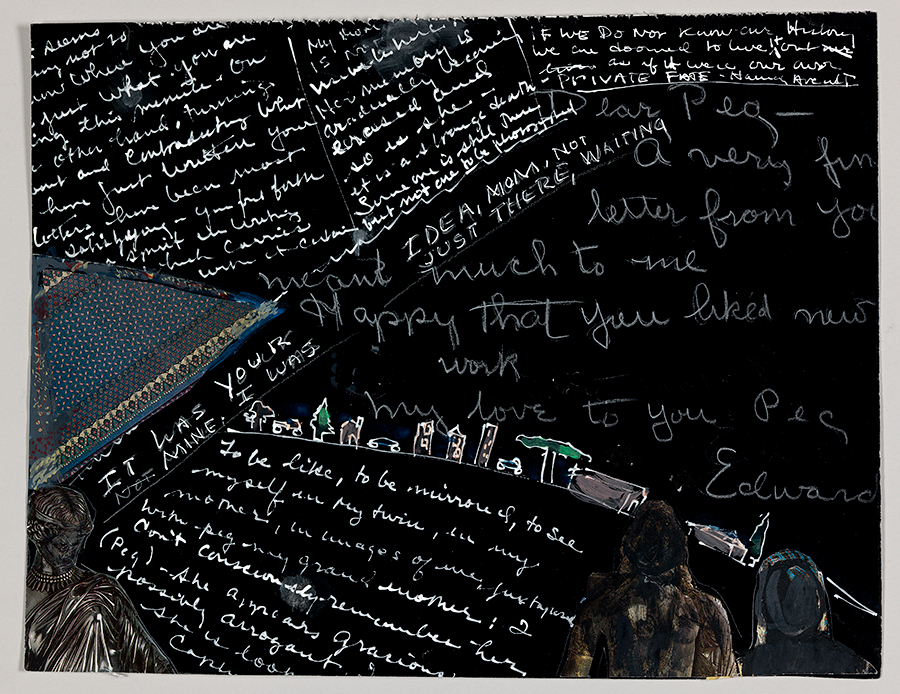 seems
not to
where you are
just what you are
this minute. On
other hand, turning
and contradicting what
have just written your
letters have been most
satisfying - you put forth
a spirit in writing
which carries
with it certain
My mom
is
Her memory is
gradually becoming
erased and
so is she -
it is a strange death
Someone is still there
but not one to be
IF WE DO NOT KNOW our History
we are doomed to live it out
as if it were our own
PRIVATE FATE - Hannah Arendt
Dear Peg -
A very fine
letter from you
meant much to me
Happy that you liked new
work
my love to you Peg
Edward
IDEA, MOM, NOT
JUST THERE, WAITING
IT WAS YOUR
NOT MINE. I WAS
To be like, to be mirrored, to see
myself in my twin, in my
mother, in images of me, juxtaposed
with peg, my grandmother: I
don't consciously remember her
(Peg) - she appears gracious
possibly arrogant
she is